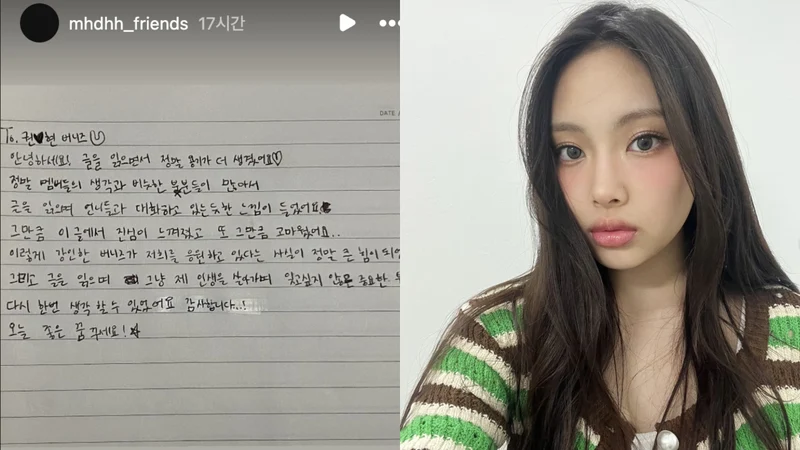 mhdhh_friends 17시간
DATE
To. 권♥현 버니즈
안녕하세요! 글을 읽으면서 정말 용기가 더 생겼어요♡
정말 멤버들의 생각과 비슷한 부분들이 많아서
글을 읽으며 언니들과 대화하고 있는듯한 느낌이 들었어요
그만큼 이 글에서 진심이 느껴졌고 또 그만큼 고마웠어요..
이렇게 강인한 버니즈가 저희를 응원하고 있다는 사실이 정말 큰 힘이
그리고 글을 읽으며 그냥 제 인생을 살아가며 잊고싶지 않은 중요한
다시 한번 생각 할 수 있었어요 감사합니다..!
오늘 좋은 꿈 꾸세요!☆